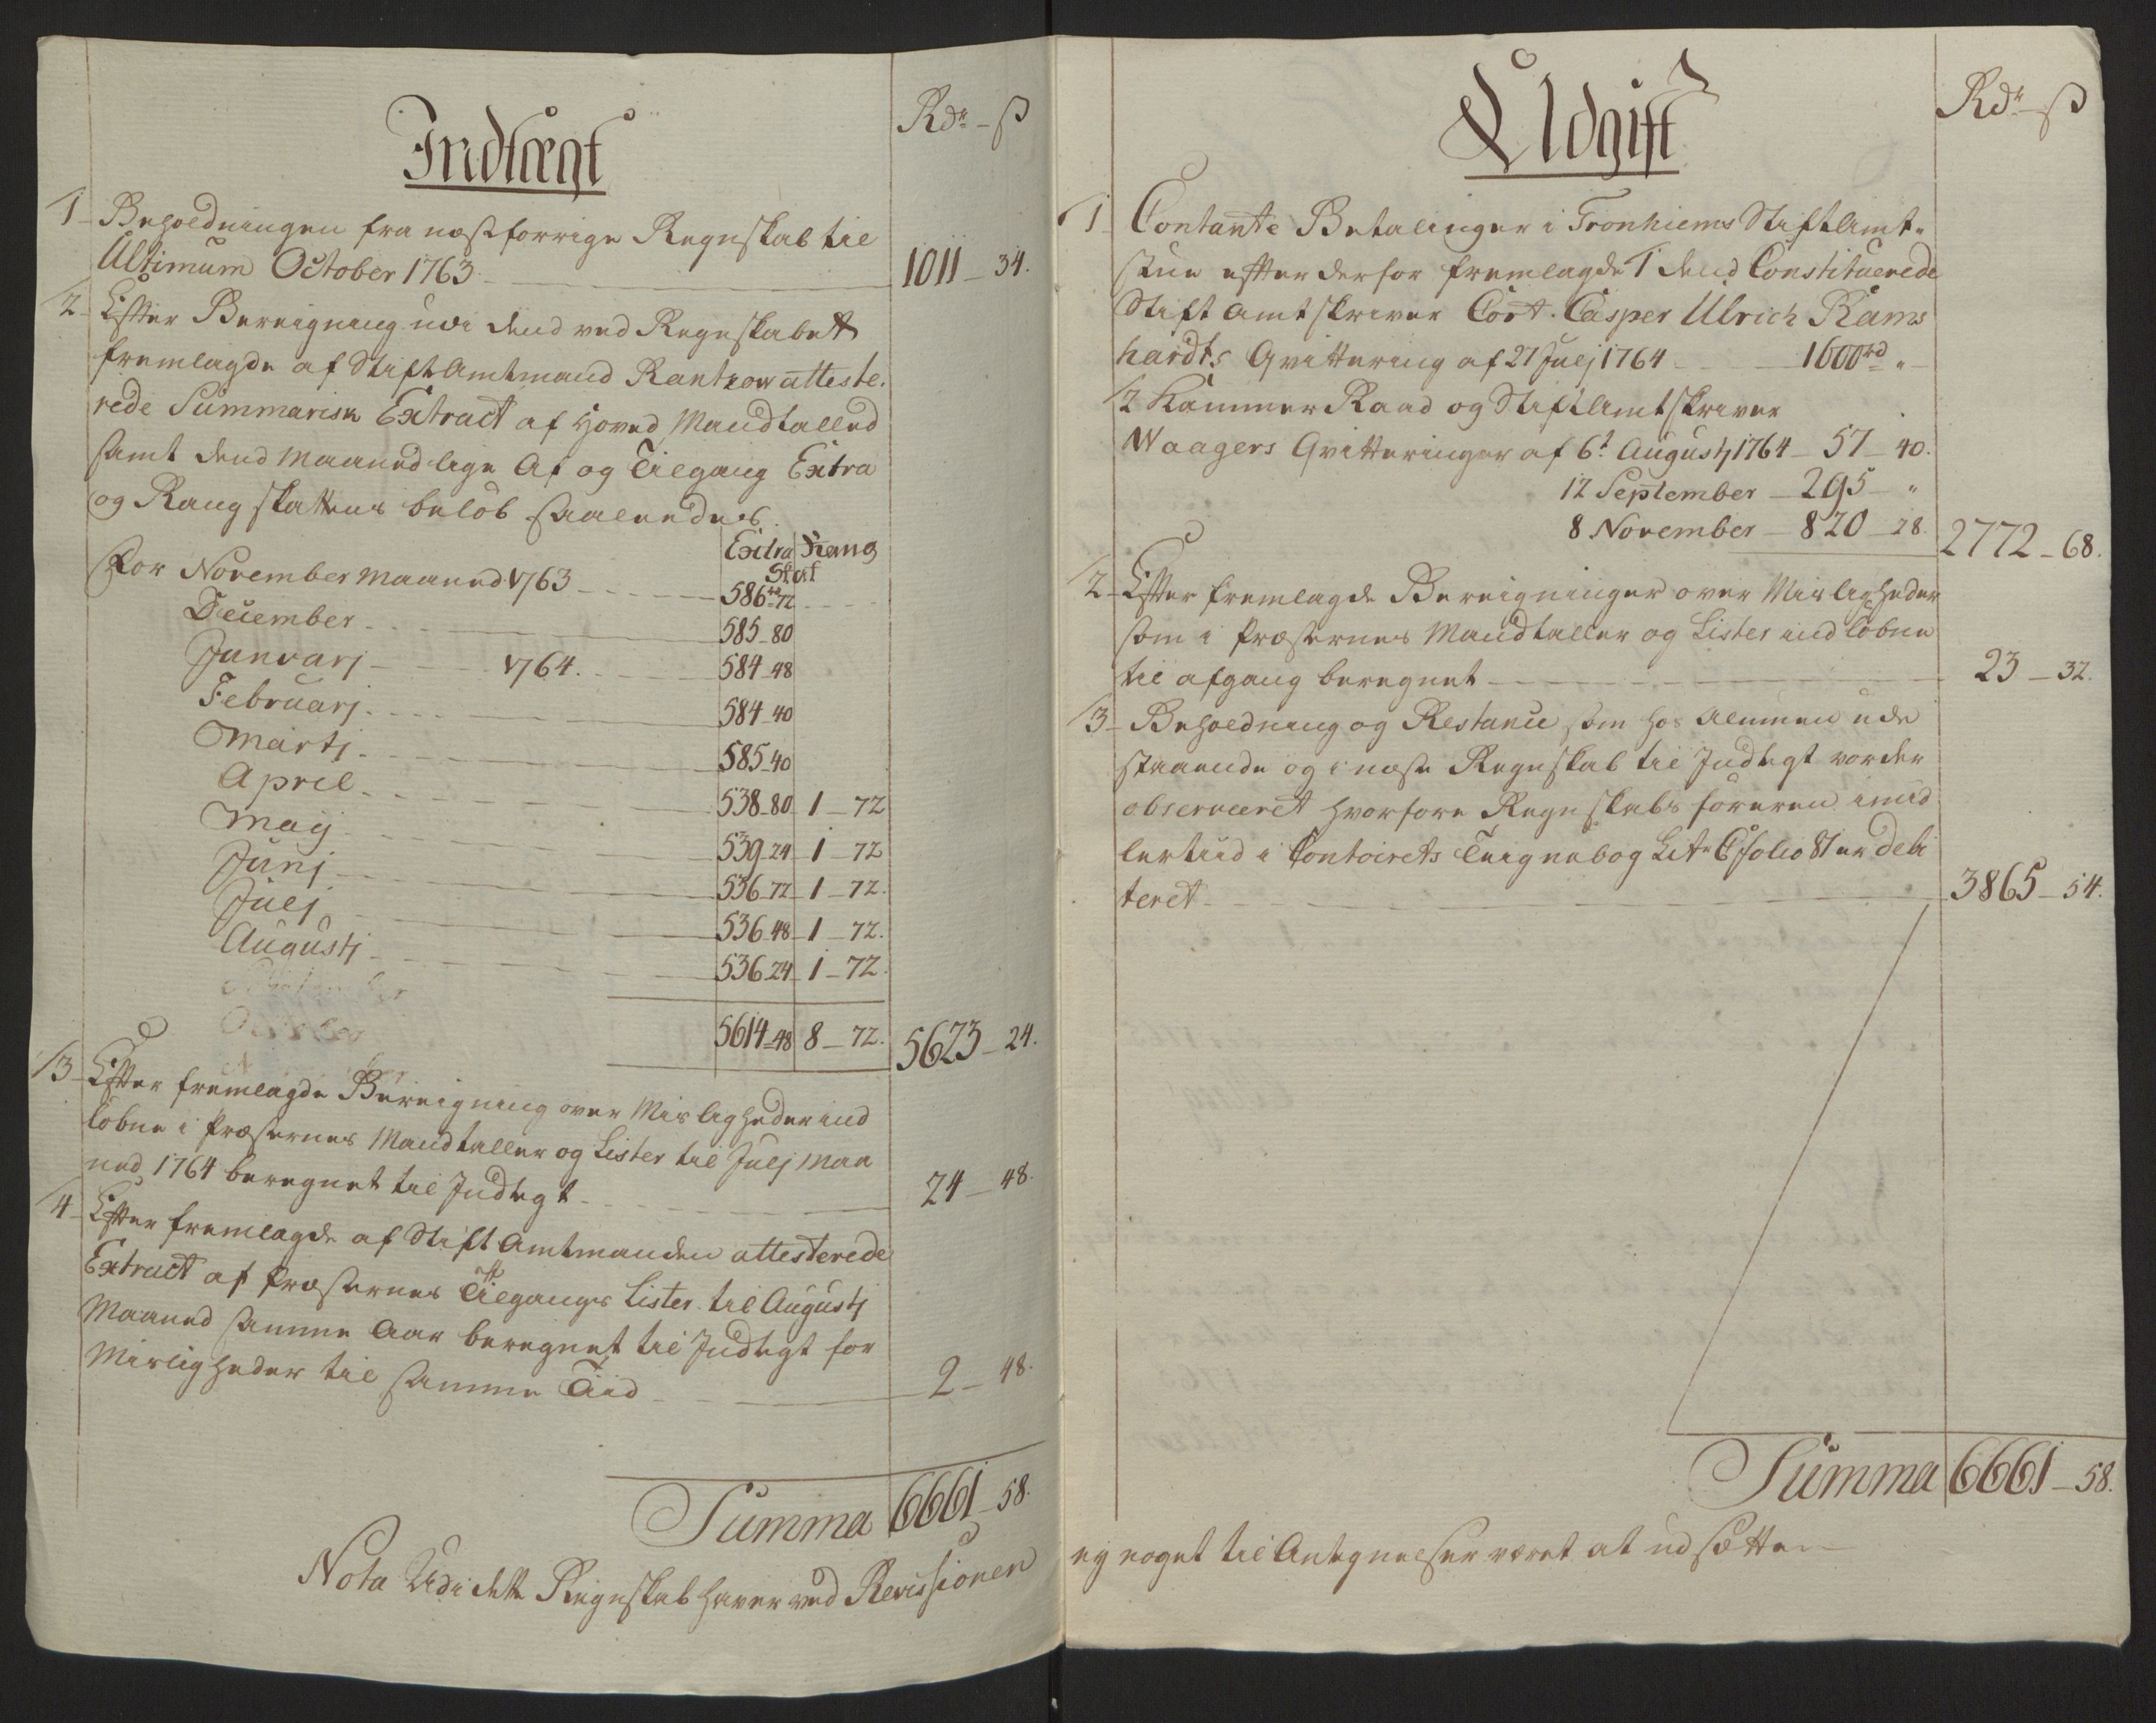 Indtægt
Rdr - ß
1 - Beholdningen fra næst forrige Regnskab til
Ultimum October 1763 - 1011 - 34.
2 - Efter Bereigning udi dend ved Regnskabett
fremlagde af Stiftamtmand Rantzow atteste-
rede Summarisk Extract af Hoved Mandtalled
samt dend Maanedlige Af og Tilgang Extra
og Rang skattens beløb saaledes
Extra Rang
Skat
For November Maaned 1763 - 586rd 72
December - 585 - 80
Januarj - 1764. - 584 - 48
Februarj - 584 - 40
Martj - 585 - 40
April - 538 - 80 - 1 - 72
Maij - 539 - 24 - 1 - 72
Junj - 536 - 72 - 1 - 72.
Julj - 536 - 48 - 1 - 72.
Augustj - 536 - 24 - 1 - 72.
September
October
5614 - 48 8 - 72. 5623 - 24.
3 - Efter fremlagde Bereigning over Misligheder ind
løbne i Præsternes Mandtaller og Lister til Julj Maa
ned 1764 beregnet til Indtegt - 24 - 48.
4 - Efter fremlagde af Stift Amtmanden attesterede
Extract af Præsternes Tilgangs Lister til Augustj
Maaned samme Aar beregnet til Indtegt for
Misligheder til samme Tiid - 2 - 48.
Summa 6661 - 58.
Nota Udi dette Regnskab haver ved Revissionen
Udgift
Rdr - ß
1 - Contante Betalinger i Tronhiems Stiftamt-
stue efter derfor fremlagde 1 dend Constituerede
Stift Amtskriver Cort. Casper Ulrich Rams
hardts Qvittering af 27 Julj 1764 - 1600rd "
2 Kammer Raad og Stiftamtskriver
Waagers Qvitteringer af 6t Augustj 1764 - 57 - 40.
12 September - 295 - "
8 November - 820 - 28. 2772 - 68.
2 - Efter fremlagde Bereigninger over Misligheder
som i Præsternes Mandtaller og Lister indløbne
til afgang beregnet - 23 - 32.
3 - Beholdning og Restance som hos Almuen ude
staaende og i næste Regnskab til Indtegt vorder
observeret hvorfore Regnskabsføreren imid
lertiid i Contoirets Teignebog Litr C folio 81 er debi
teret - 3865 - 54.
Summa 6661 - 58.
ej noget til Antegnelser været at udsætte